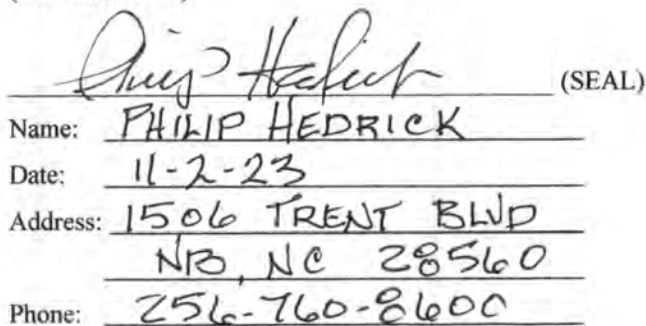 (SEAL)
Name: PHILIP HEDRICK
Date: 11-2-23
Address: 1506 TRENT BLVD
NB, NC 28560
Phone: 256-760-8600